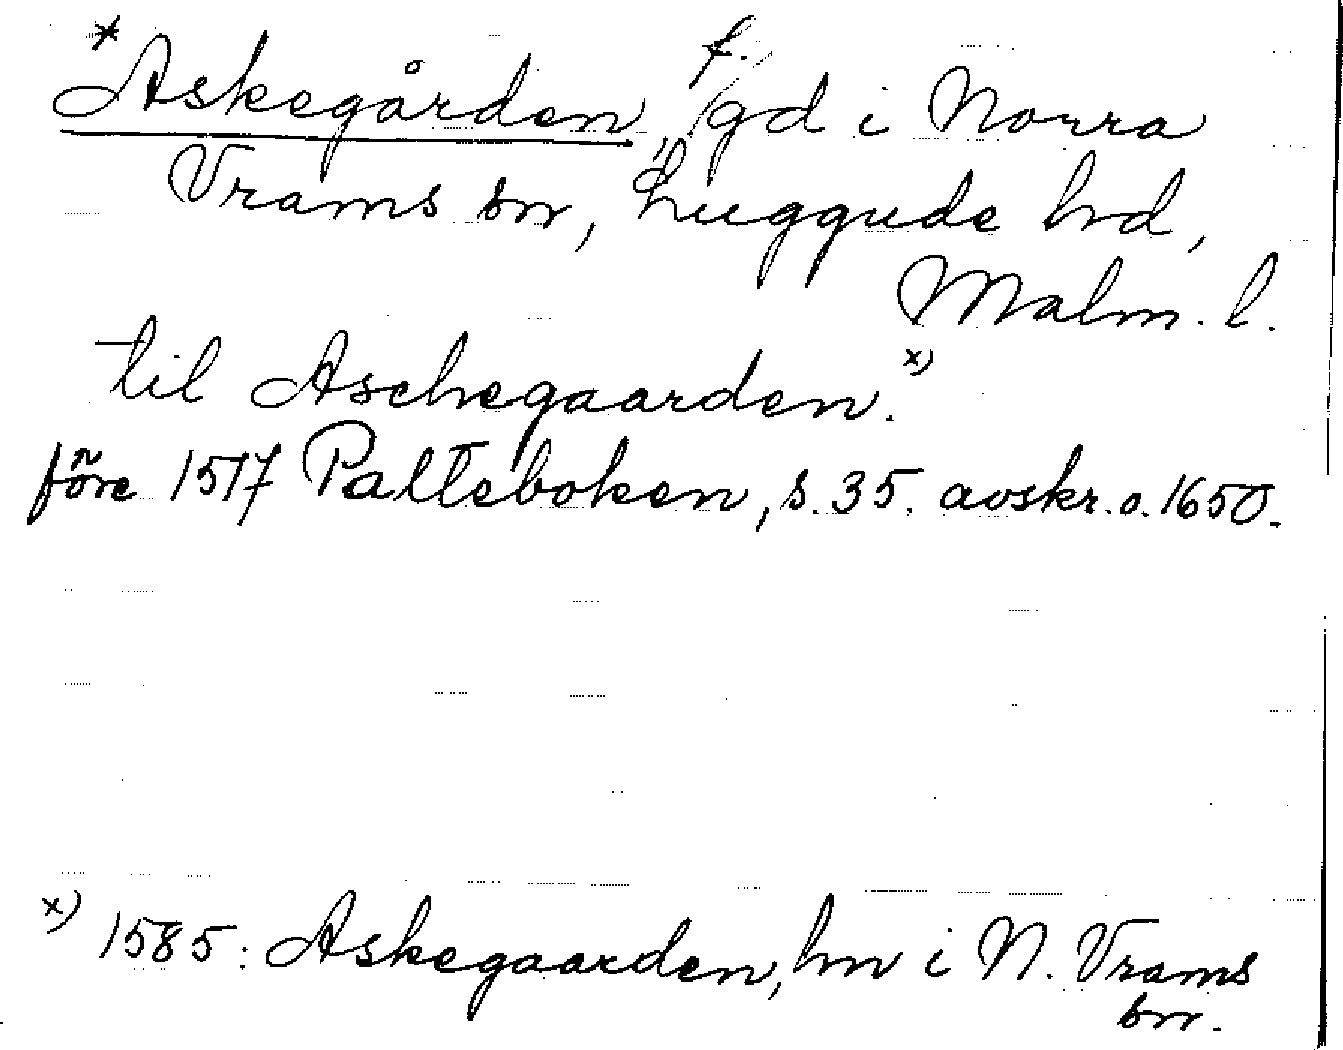 *Askegården, f. gd i Norra
Vrams sn, Luggude hd,
Malm. l.
til Aschegaarden. x)
före 1517 Palteboken, s. 35. avskr. o. 1650.
x) 1585: Askegaarden, hn i N. Vrams
sn.